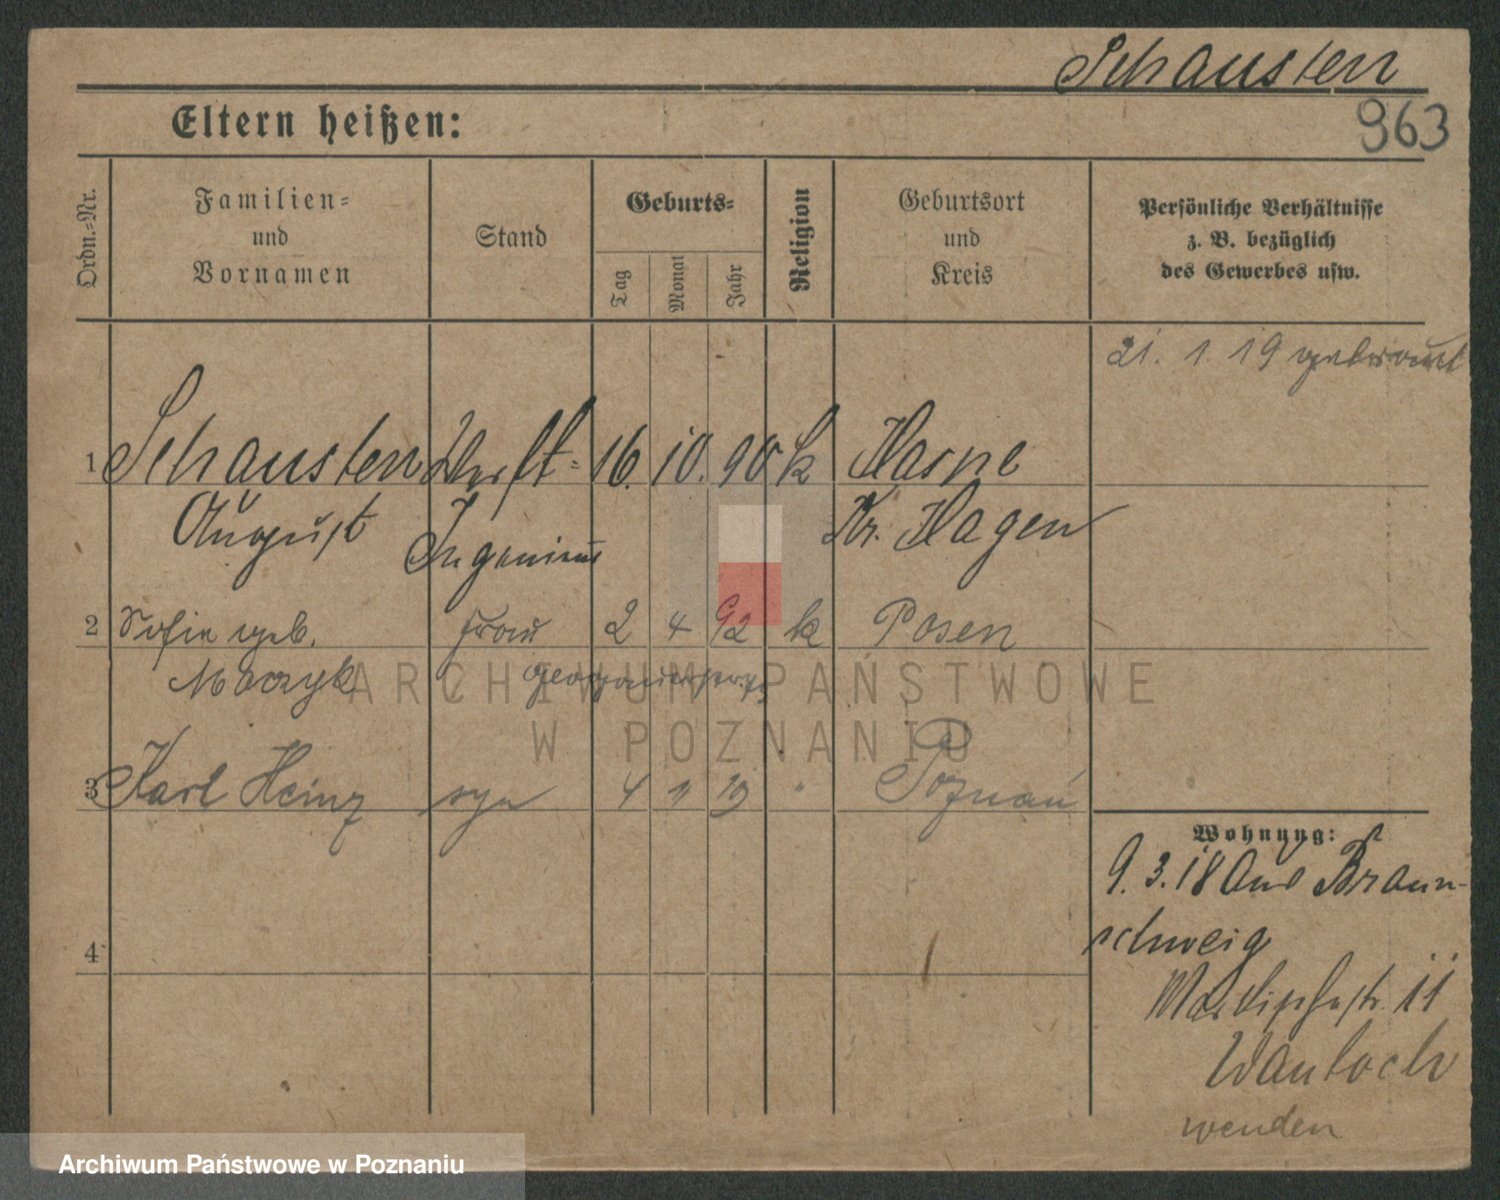 Schausten
963
Eltern heißen:
Ordn.-Nr.
Familien-
und
Vornamen
Stand
Geburts-
Tag
Monat
Jahr
Religion
Geburtsort
und
Kreis
Persönliche Verhältnisse
z. B. bezüglich
des Gewerbes usw.
21. 1. 19 getraut
1 Schausten Werft- 16. 10. 90 k Haspe
August Ingenieur Kr. Hagen
2 Sofie geb. Frau 2 4 92 k Posen
3 Karl Heinz syn 4 1 19 " Poznań
Wohnung:
9. 3. 18 Aus Braun-
schweig
11
wenden
4
ARCHIWUM PAŃSTWOWE
W POZNANIU
Archiwum Państwowe w Poznaniu